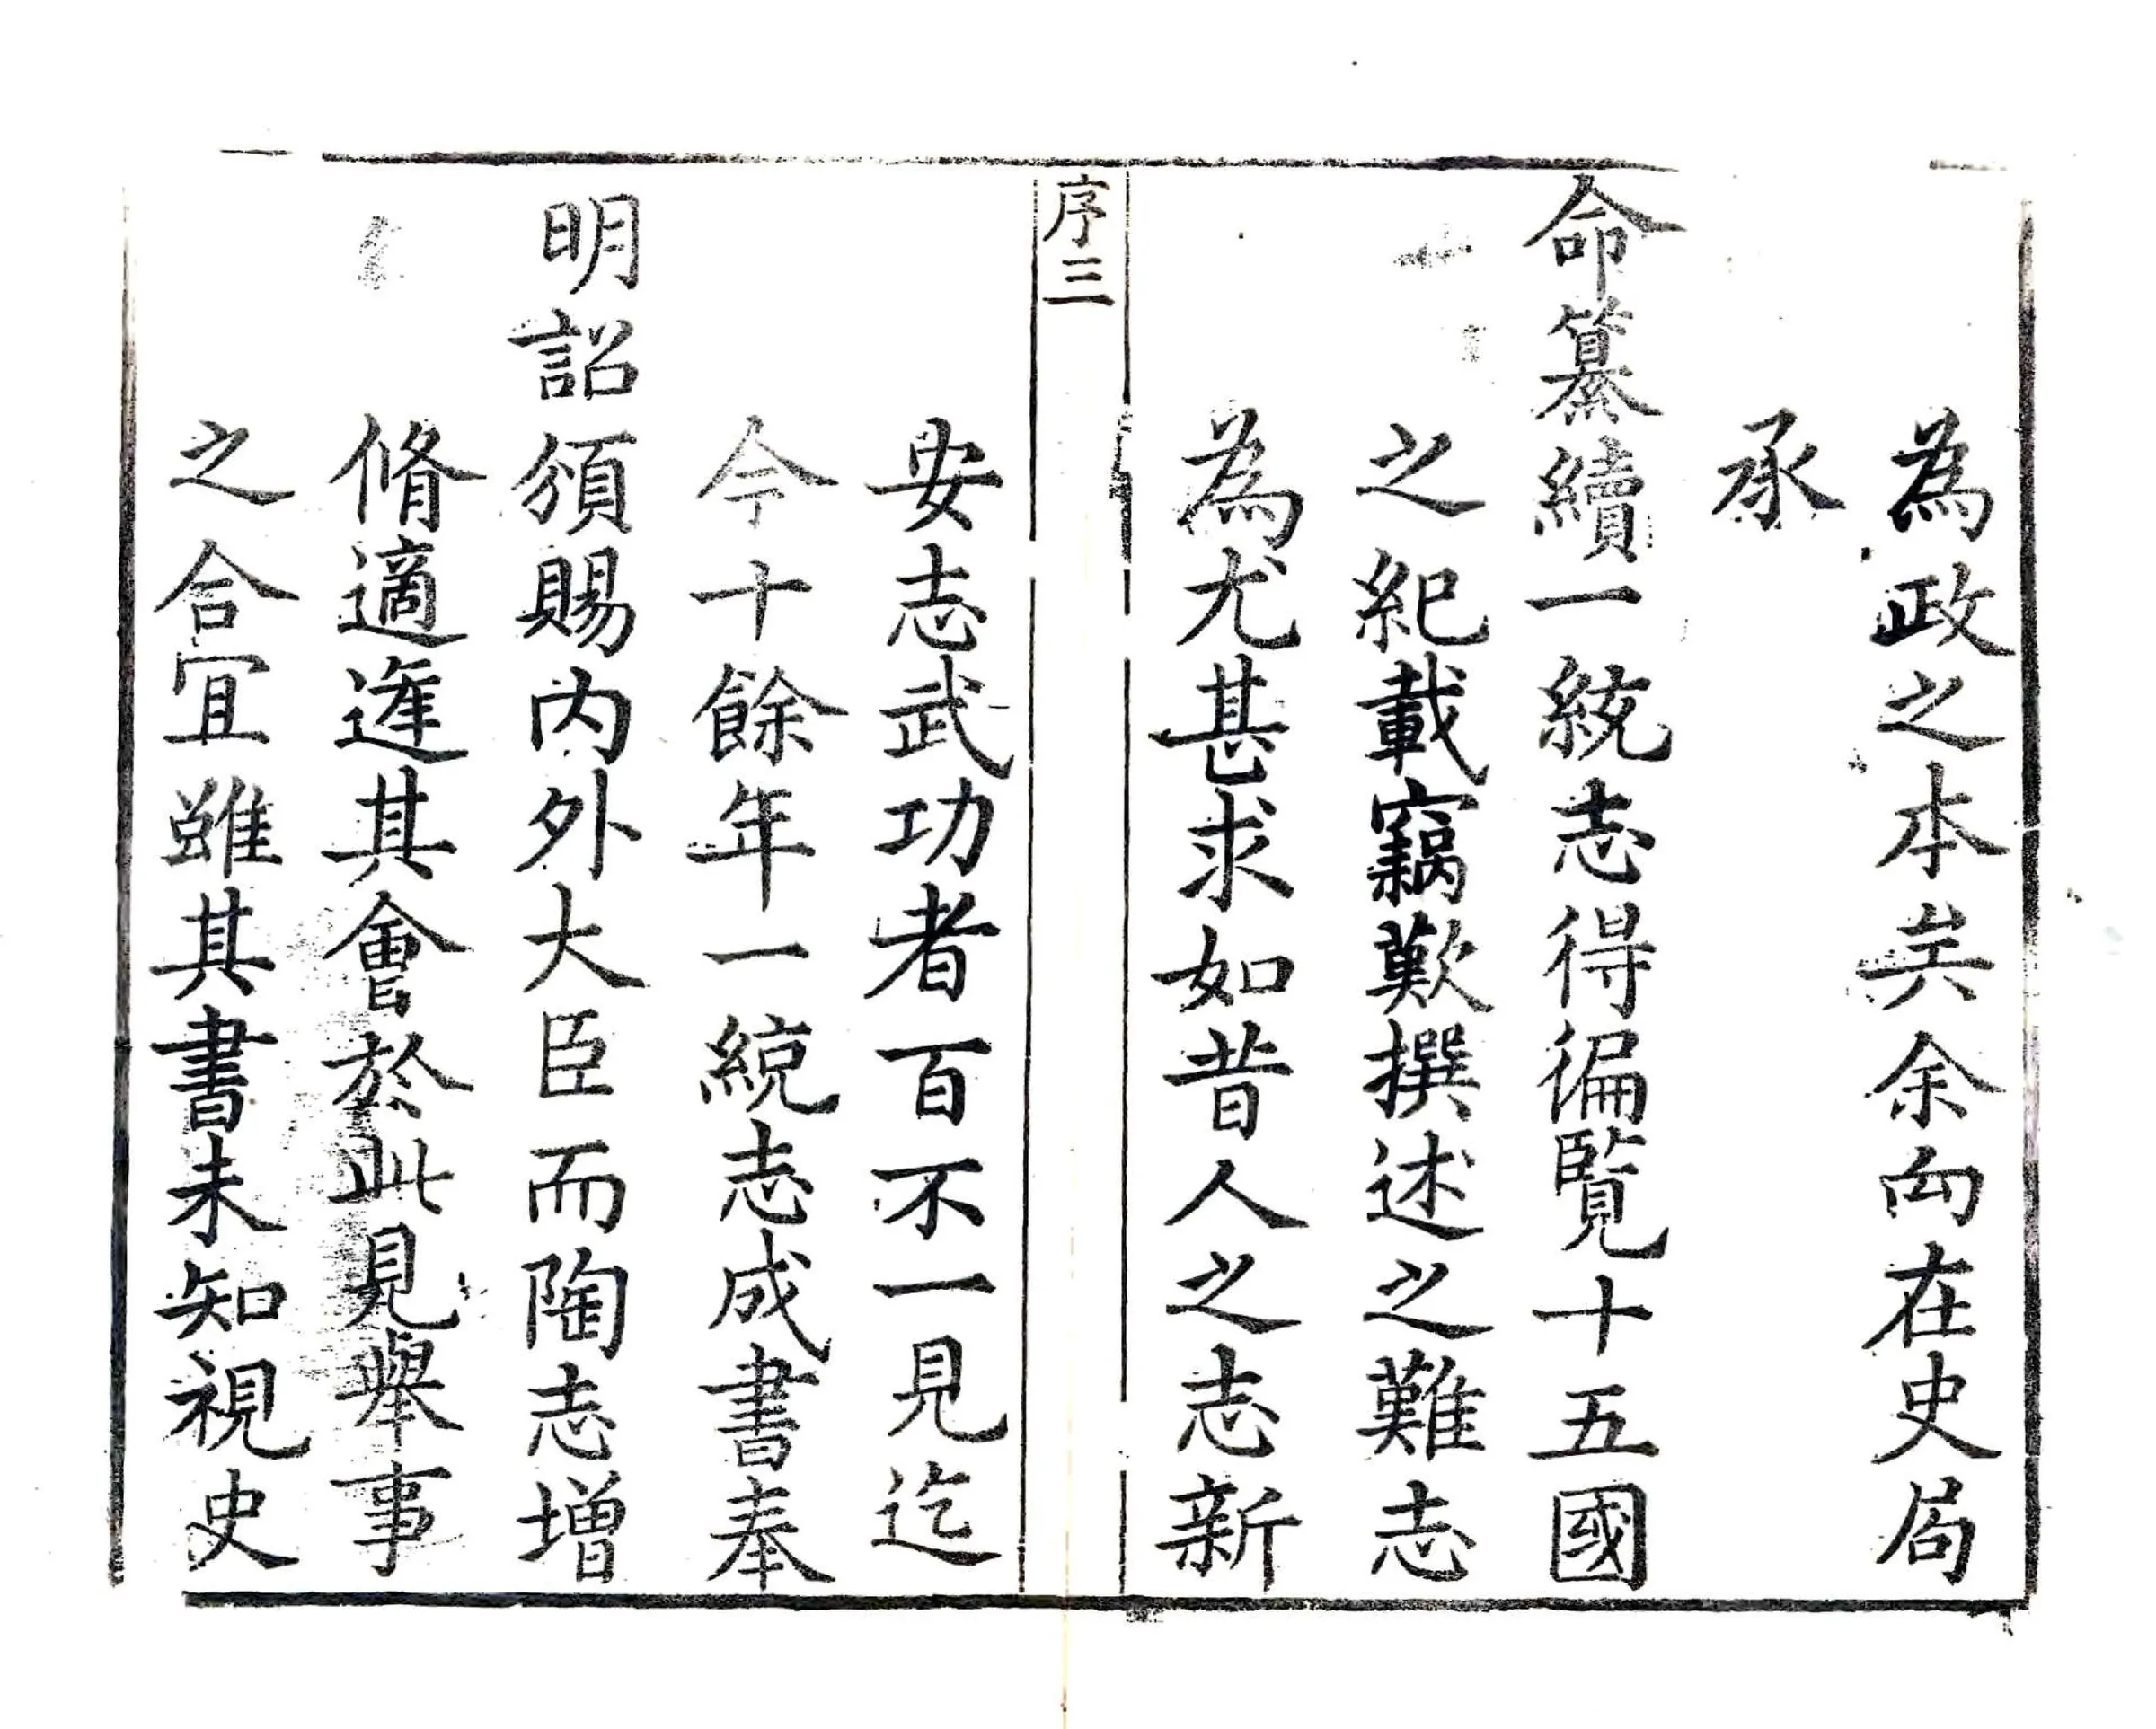 為政之本矣余向在史局
承
命纂續一統志得徧覽十五國
之紀載竊歎撰述之難志
為尤甚求如昔人之志新
序三
安志武功者百不一見迄
今十餘年一統志成書奉
明詔頒賜內外大臣而陶志增
脩適逢其會於此見舉事
之合宜雖其書未知視史